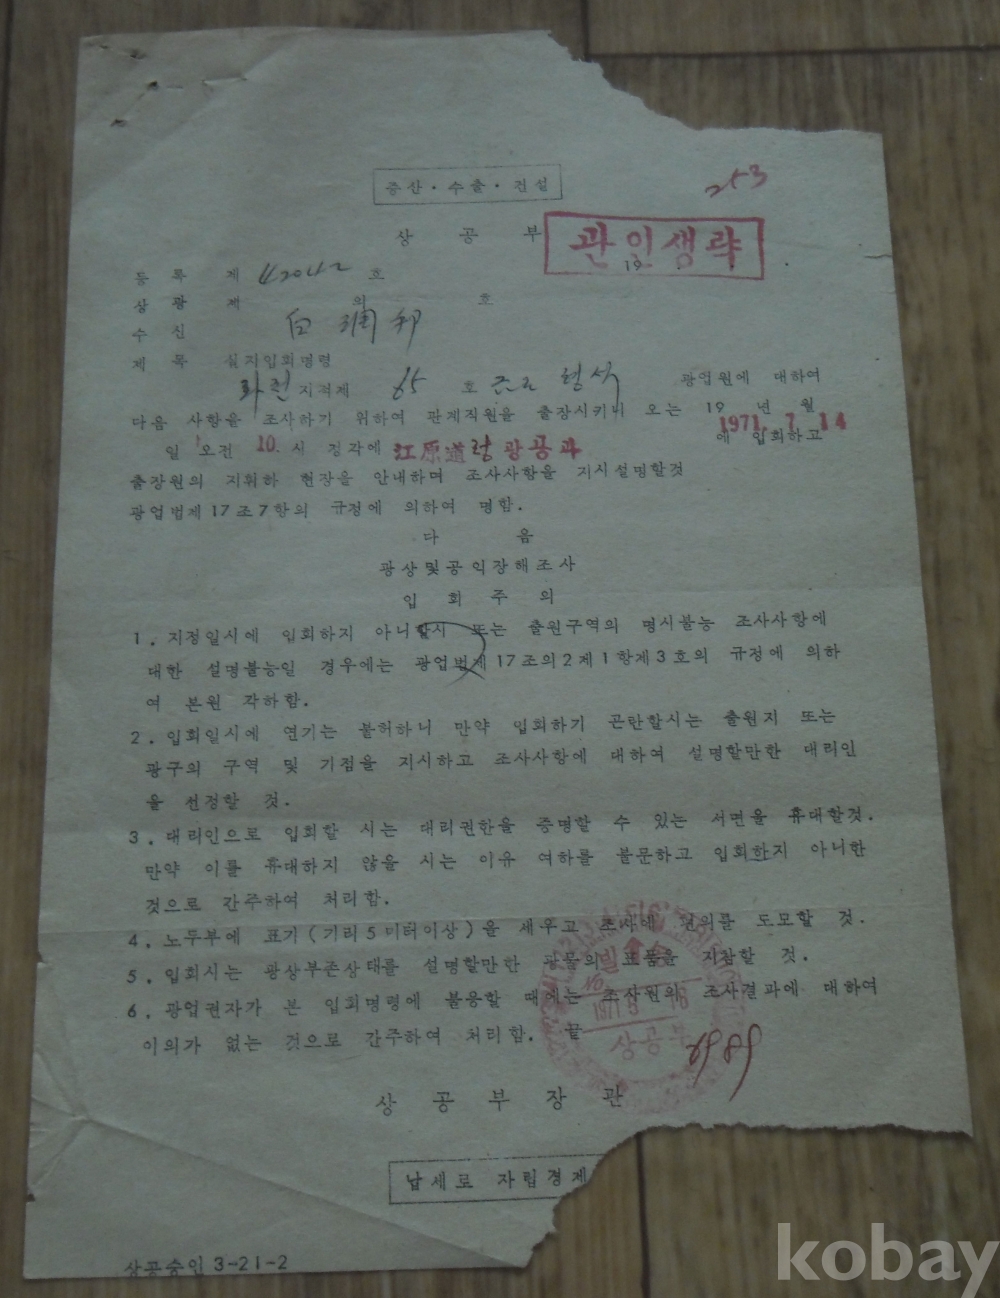 증산·수출·건설
253
상 공 부
관인생략
19 . .
등 록 제 42042 호
상 광 제 의 호
수 신 白 潤 邦
제 목 실지입회명령
지적제 65 호 광업원에 대하여
다음 사항을 조사하기 위하여 관계직원을 출장시키니 오는 19 년 월
1971. 7. 14
일 오전 10. 시 정각에 江原道청 광공과 에 입회하고
출장원의 지휘하 현장을 안내하며 조사사항을 지시설명할것
광업법제17조7항의 규정에 의하여 명함.
다 음
광상및공익장해조사
입 회 주 의
1. 지정일시에 입회하지 아니할시 또는 출원구역의 명시불능 조사사항에
대한 설명불능일 경우에는 광업법제17조의2제1항제3호의 규정에 의하
여 본원 각하함.
2. 입회일시에 연기는 불허하니 만약 입회하기 곤란할시는 출원지 또는
광구의 구역 및 기점을 지시하고 조사사항에 대하여 설명할만한 대리인
을 선정할 것.
3. 대리인으로 입회할 시는 대리권한을 증명할 수 있는 서면을 휴대할것.
만약 이를 휴대하지 않을 시는 이유 여하를 불문하고 입회한지 아니한
것으로 간주하여 처리함.
4. 노두부에 표기(기리5미터이상)을 세우고 조사에 편의를 도모할 것.
5. 입회시는 광상부존상태를 설명할만한 광물의 표품을 지참할 것.
6. 광업권자가 본 입회명령에 불응할 때에는 조사원의 조사결과에 대하여
이의가 없는 것으로 간주하여 처리함. 끝
상공부
상 공 부 장 관
납세로 자립경제
상공승인 3-21-2
kobay